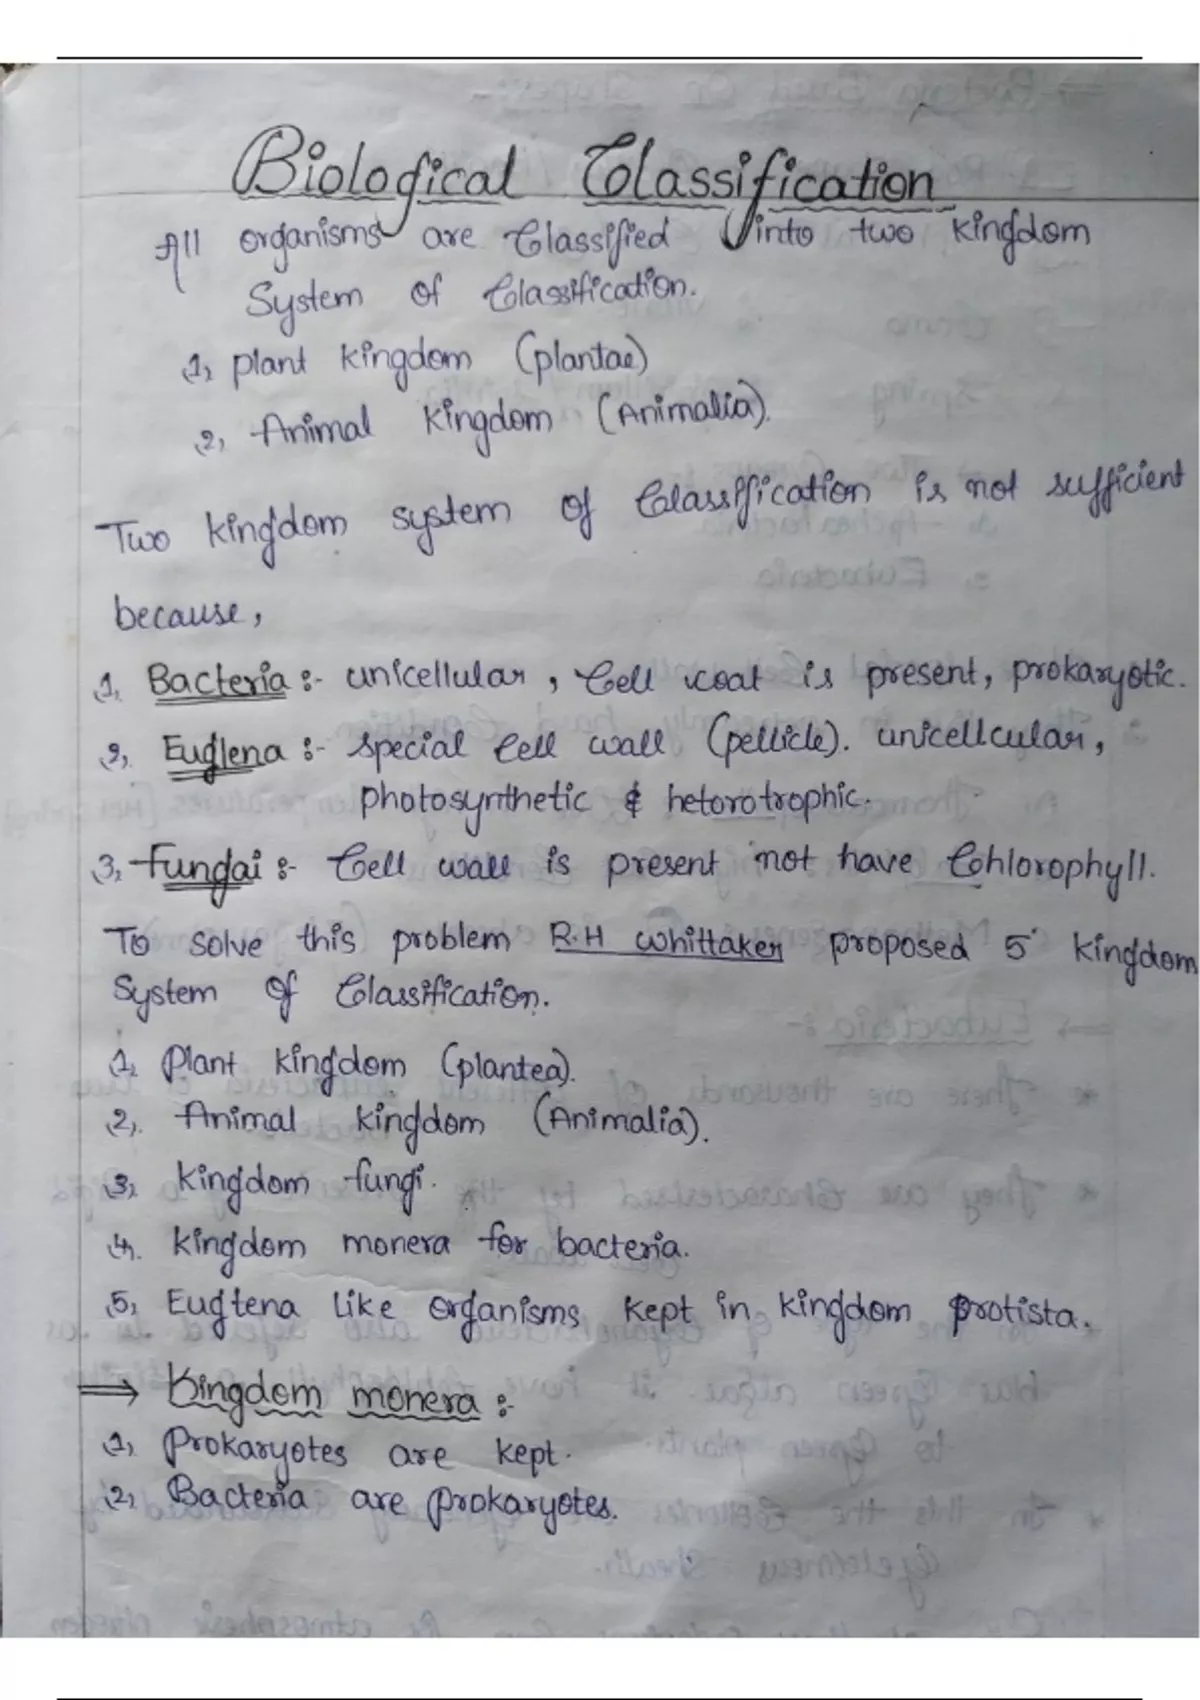 Biological Classification
All organisms are Classified into two kingdom
System of Classification.
1, plant kingdom (plantae)
2, Animal kingdom (Animalia).
Two kingdom system of Classification is not sufficient
because,
1. Bacteria :- unicellular, Cell coat is present, prokaryotic.
2, Euglena :- special Cell wall (pellicle). unicellcular,
photosynthetic & hetorotrophic.
3, Fundai :- Cell wall is present not have Chlorophyll.
To solve this problem R.H Whittaker proposed 5 kingdom
System of Classification.
1, Plant kingdom (plantea).
2, Animal kingdom (Animalia).
3, kingdom fungi.
4. kingdom monera for bacteria.
5, Eugtena like organisms kept in kingdom protista.
⇒ Kingdom monera :-
1, Prokaryotes are kept.
2, Bacteria are prokaryotes.